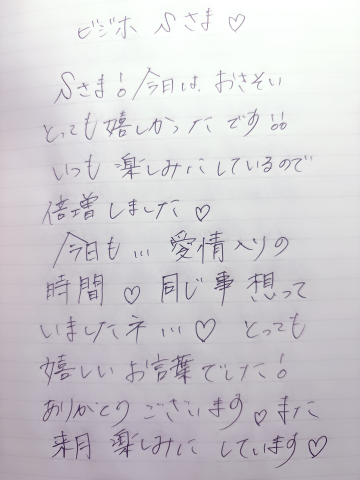 ビジホ Sさま♡
Sさま! 今日は、おさそい
とっても嬉しかったです!!
いつも楽しみにしているので
倍増しました♡
今日も... 愛情入りの
時間♡ 同じ事想って
いましたネ...♡ とっても
嬉しいお言葉でした!
ありがとうございます♡また
来月楽しみにしています♡